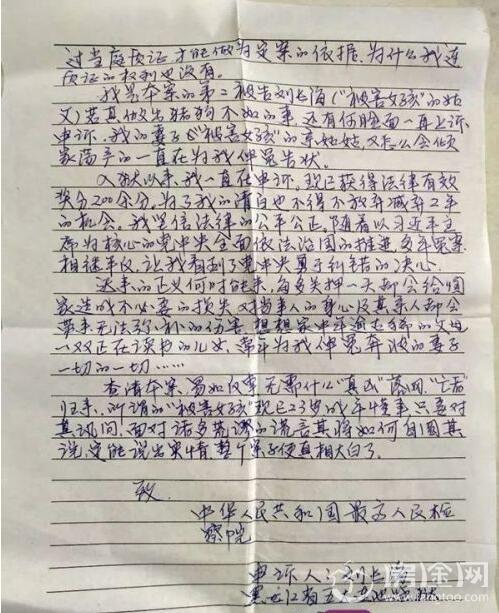 过当庭质证才能做为定案的依据,为什么我连
质证的权利也没有。
我是本案的第二被告刘长海("被害女孩"的姑
父)若真做出猪狗不如的事,还有何脸面一再上诉、
申诉,我的妻子("被害女孩"的亲姑姑)又怎么会倾
家荡产的一直在为我伸冤告状。
入狱以来,我一直在申诉,现已获得法律有效
奖分200余分,为了我的清白也不得不放弃减去2年
的机会。我坚信法律的公平公正,随着以习近平主
席为核心的党中央全面依法治国的推进,多年冤案
相继平反,让我看到了党中央勇于纠错的决心。
迟来的正义何时能来,每多失押一天都会给国
家造成不必要的损失,对当事人的身心及其亲人都会
带来无法弥补的伤害,想想家中年逾七旬的父母
一双正在读书的儿女,常年为我伸冤奔波的妻子
一切的一切……
查清本案,易如反掌,无需什么"真凶"落网,"亡者"
归来,所谓的"被害女孩"现已23岁成年懂事,只要对
其讯问,面对诸多荒谬的谎言其将如何自圆其
说,定能说出实情,整个案子便真相大白了。
致
中华人民共和国最高人民检
察院
申诉人:刘长海
房金网